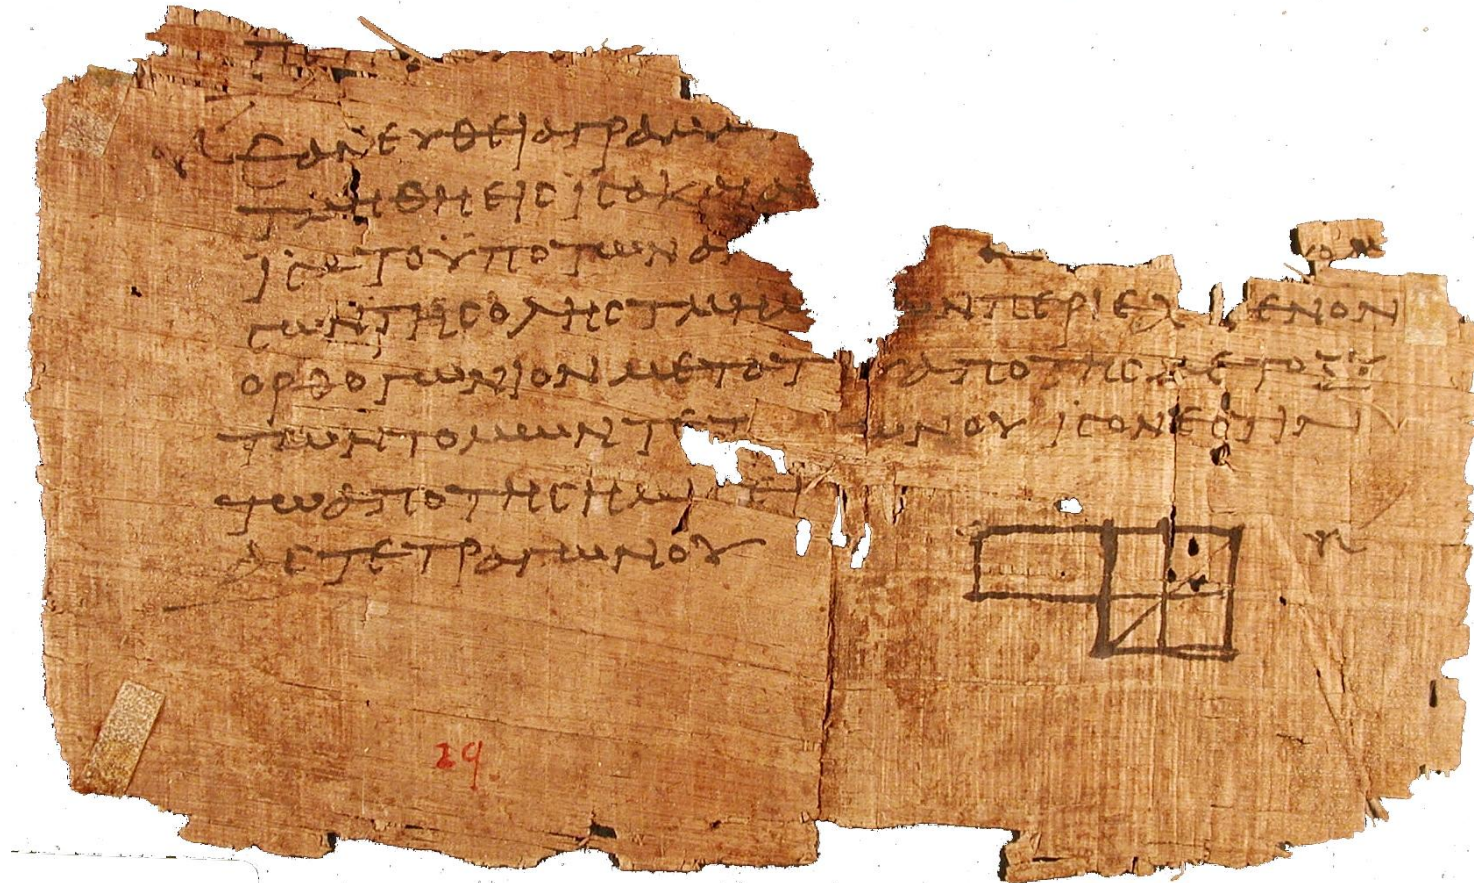 ΕΑΝΕΥΘΕΙΑΓΡΑΜΜ
ΤΜΗΘΗΕΙСΙСΑΚΑΙΑ
ΙСΑΤΟΥΠΟΤΩΝΑ
СΩΝΤΗСΟΛΗСΤΜΗΜ ΩΝΠΕΡΙΕΧ ΜΕΝΟΝ
ΟΡΘΟΓΩΝΙΟΝΜΕΤΟΤ ΑΠΟΤΗСΜΕΤΟΞΥ
ΤΩΝΤΟΜΩΝΤΕΤ ΩΝΟΥΙСΟΝΕСΤΙΝ
ΤΩΑΠΟΤΗСΗΜΙСΕΙ
ΑСΤΕΤΡΑΓΩΝΟΥ
29